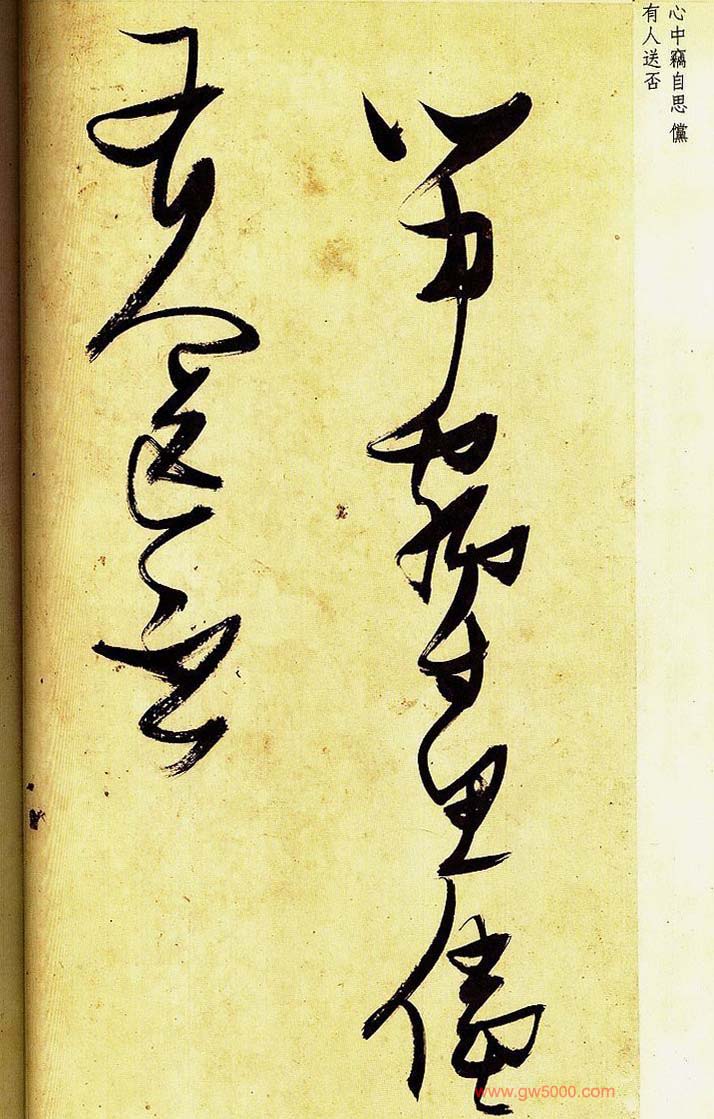 心中竊自思 儻
有人送否
心中竊自思儻
有人送否
www.gw5000.com